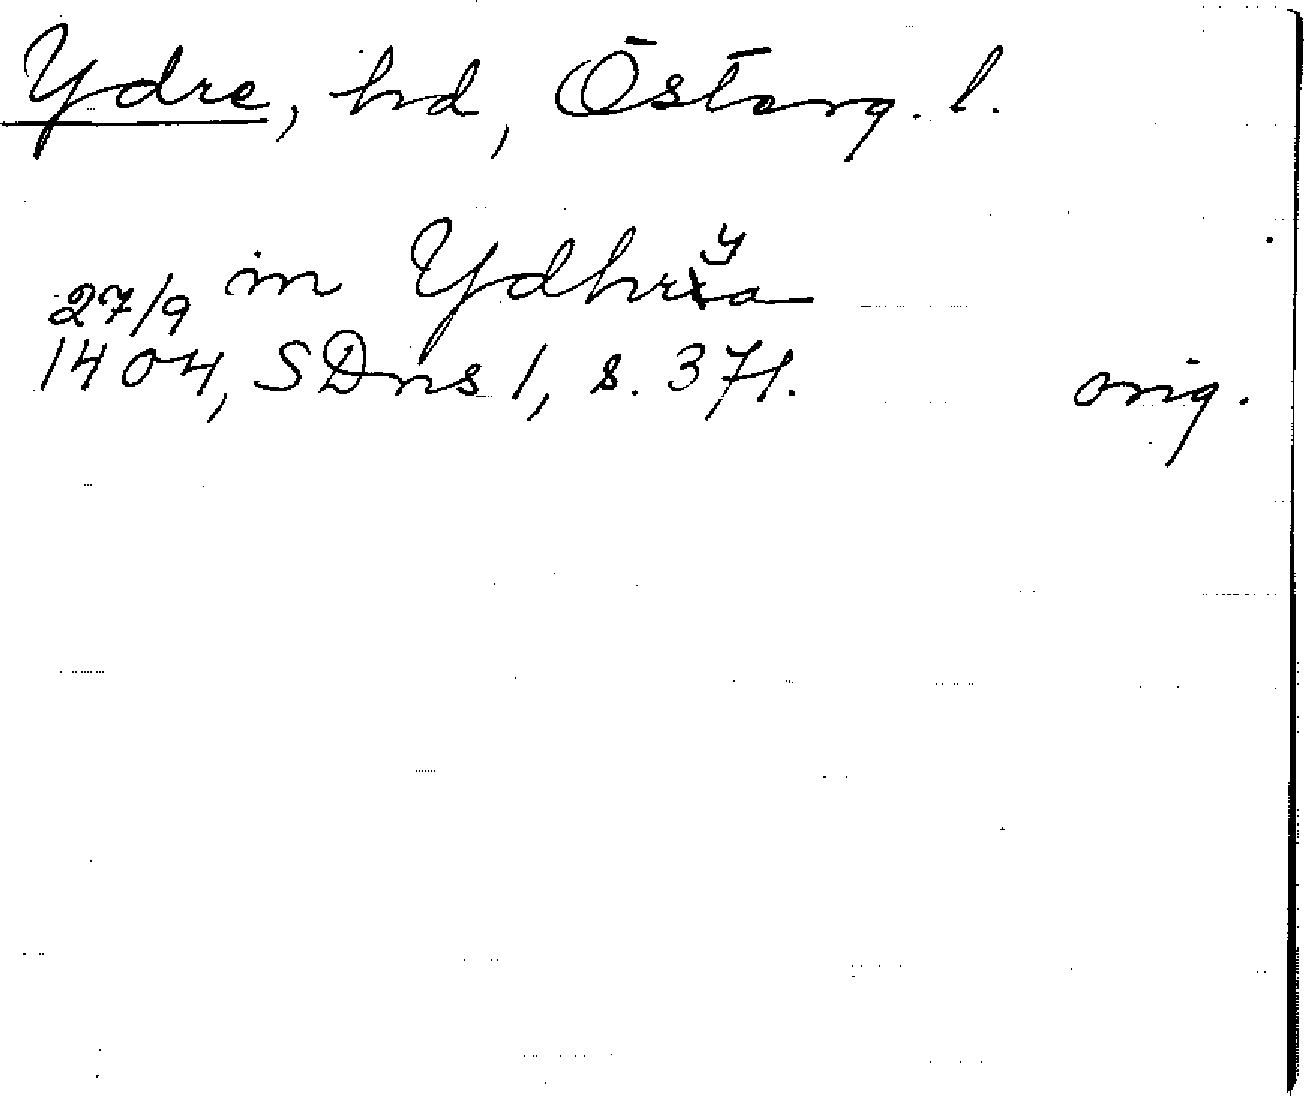 Ydre, hd, Österg. l.
in Ydhrya
27/9
1404, SDns 1, s. 371. orig.